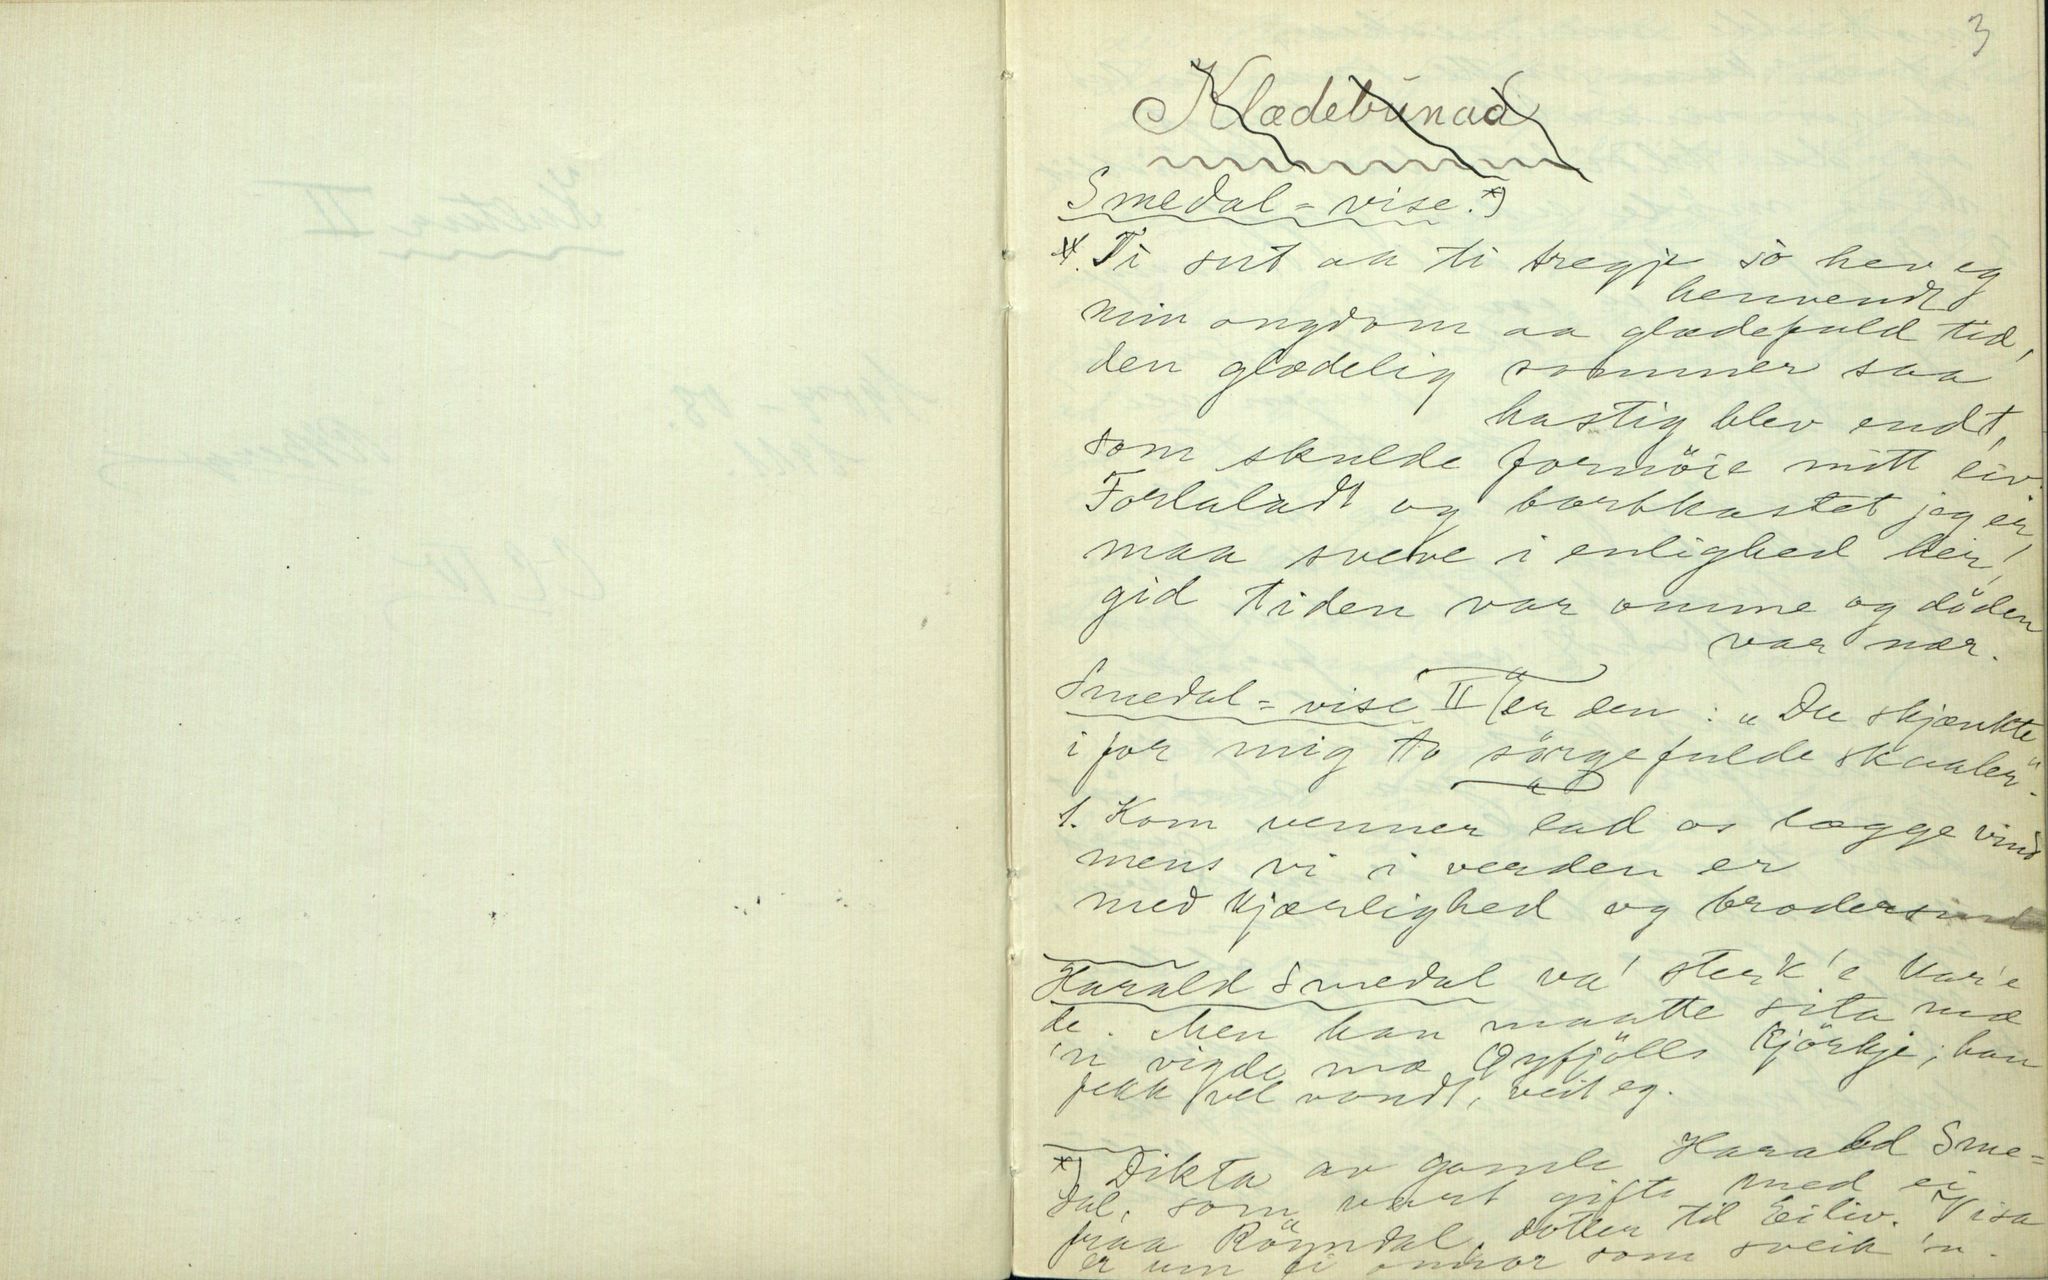 3
Klædebunad
Smedal-vise.*)
1. Ti sut aa ti tregje so hev eg
henvendt
min ongdom aa glædefuld tid,
den glædelig sommer saa
hastig blev endt,
som skulde fornöie mitt liv.
Forlaladt og bortkastet jeg er,
maa sveve i enlighed her,
gid tiden var omme og döden
var nær.
Smedal-vise II (er den: "Du skjænkte
i for mig to sörgefulde skaaler".
1. Kom venner lad os lægge vind
mens vi i verden er
med kjærlighed og brodersind
Harald Smedal va' sterk'e kar'e
de. Men han maatte sita mæ
'n vigde mæ Öyfjölls kjörkje; han
fekk vel vondt, veit eg.
*) Dikta av gamle Harald Sme-
dal, som vart gift med ei
fraa Rönndal, dotter til Eiliv. Visa
er um ei onnor som sveik 'n.